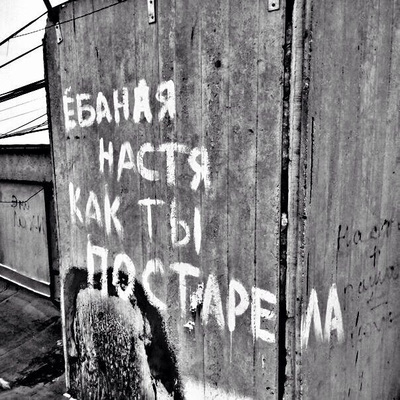 ЁБАНАЯ
НАСТЯ
КАК ТЫ
ПОСТАРЕЛА